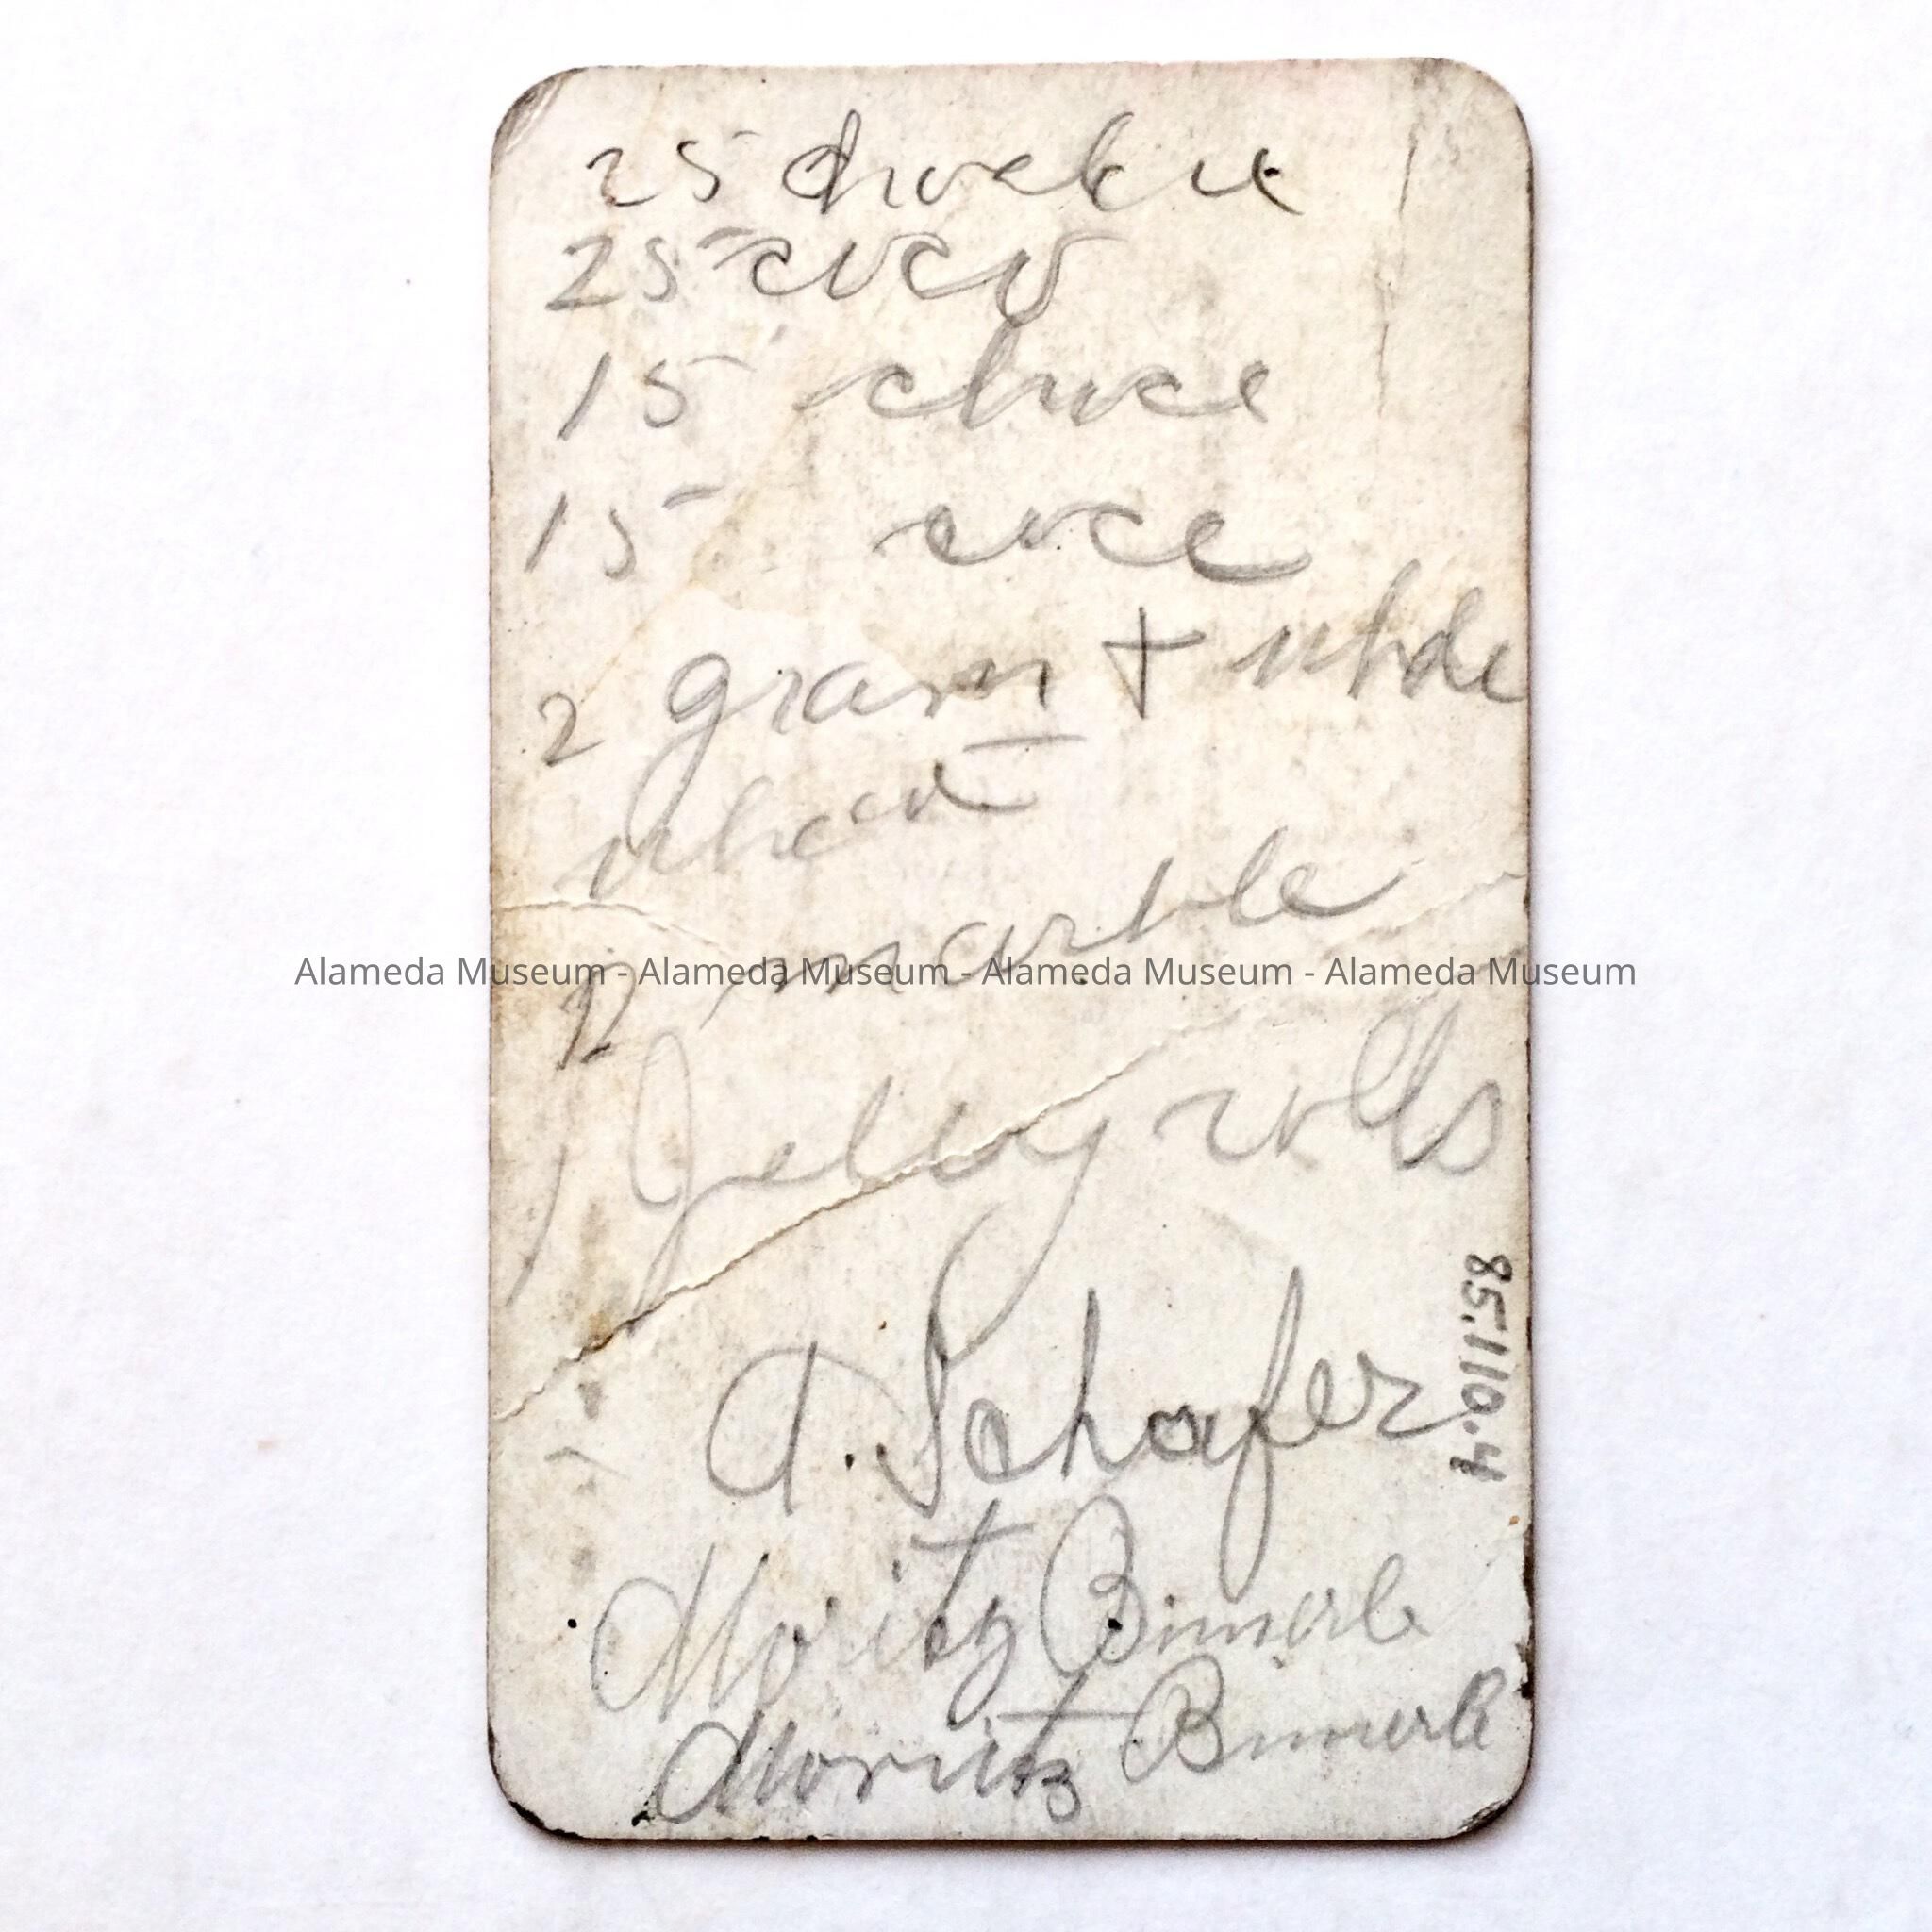 25
25 coco
15
15 coce
2 gram +
wheat
12 marble
1 Jelly rolls
A. Schafer
Moritz Bimerle
Moritz Bimerle
85.110.4
Alameda Museum - Alameda Museum - Alameda Museum - Alameda Museum